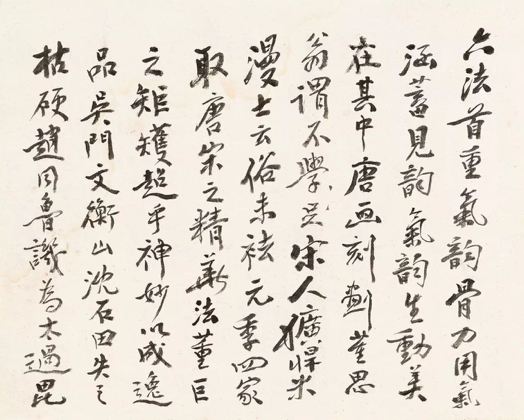 六法首重氣韵骨力用氣
涵蓄見韵氣韵生動美
在其中唐画刻劃董思
翁謂不學宋人獷悍米
漫士云俗未祛元季四家
取唐宋之精華法董巨
之矩矱超乎神妙以成逸
品吳門文衡山沈石田失之
枯硬趙同魯譏為太過毘